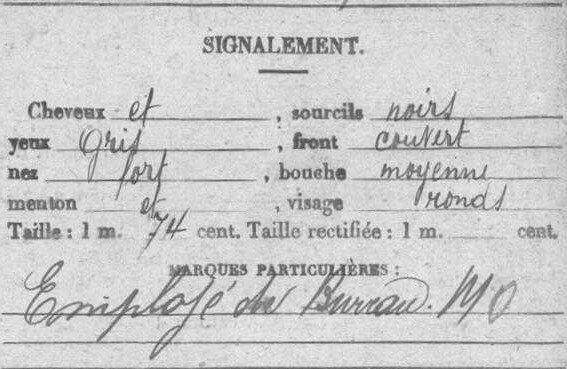 SIGNALEMENT.
Cheveux et, sourcils noirs
yeux gris, front couvert
nez fort, bouche moyenne
menton et, visage ronds
Taille: 1 m. 74 cent. Taille rectifiée: 1 m. cent.
MARQUES PARTICULIÈRES:
Employé de Bureau. MO